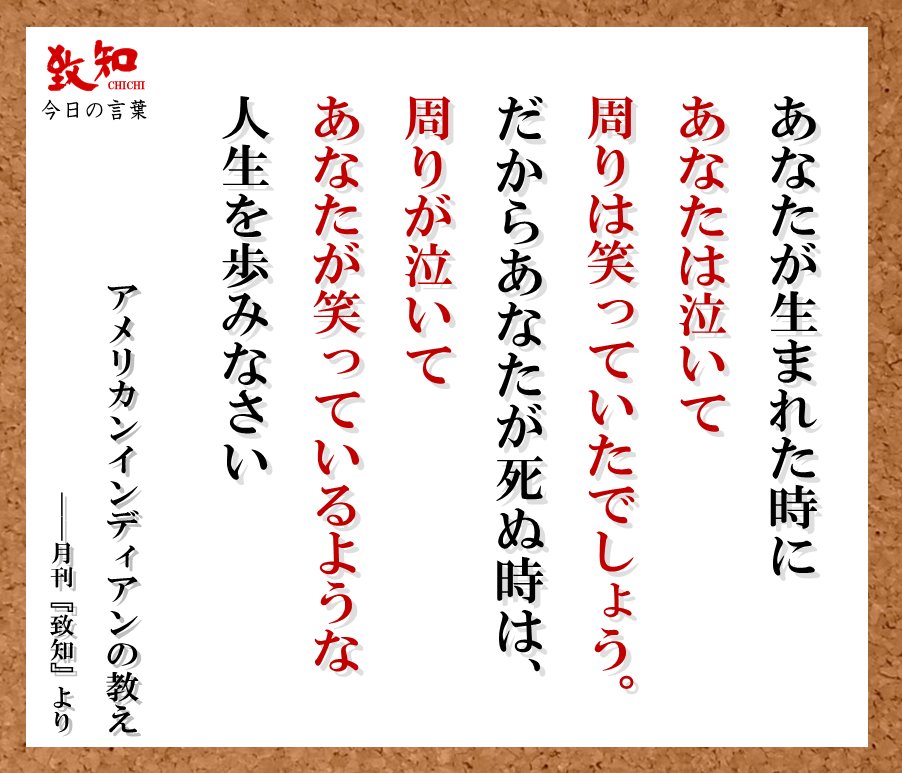 致知
CHICHI
今日の言葉
あなたが生まれた時に
あなたは泣いて
周りは笑っていたでしょう。
だからあなたが死ぬ時は、
周りが泣いて
あなたが笑っているような
人生を歩みなさい
アメリカンインディアンの教え
――月刊『致知』より